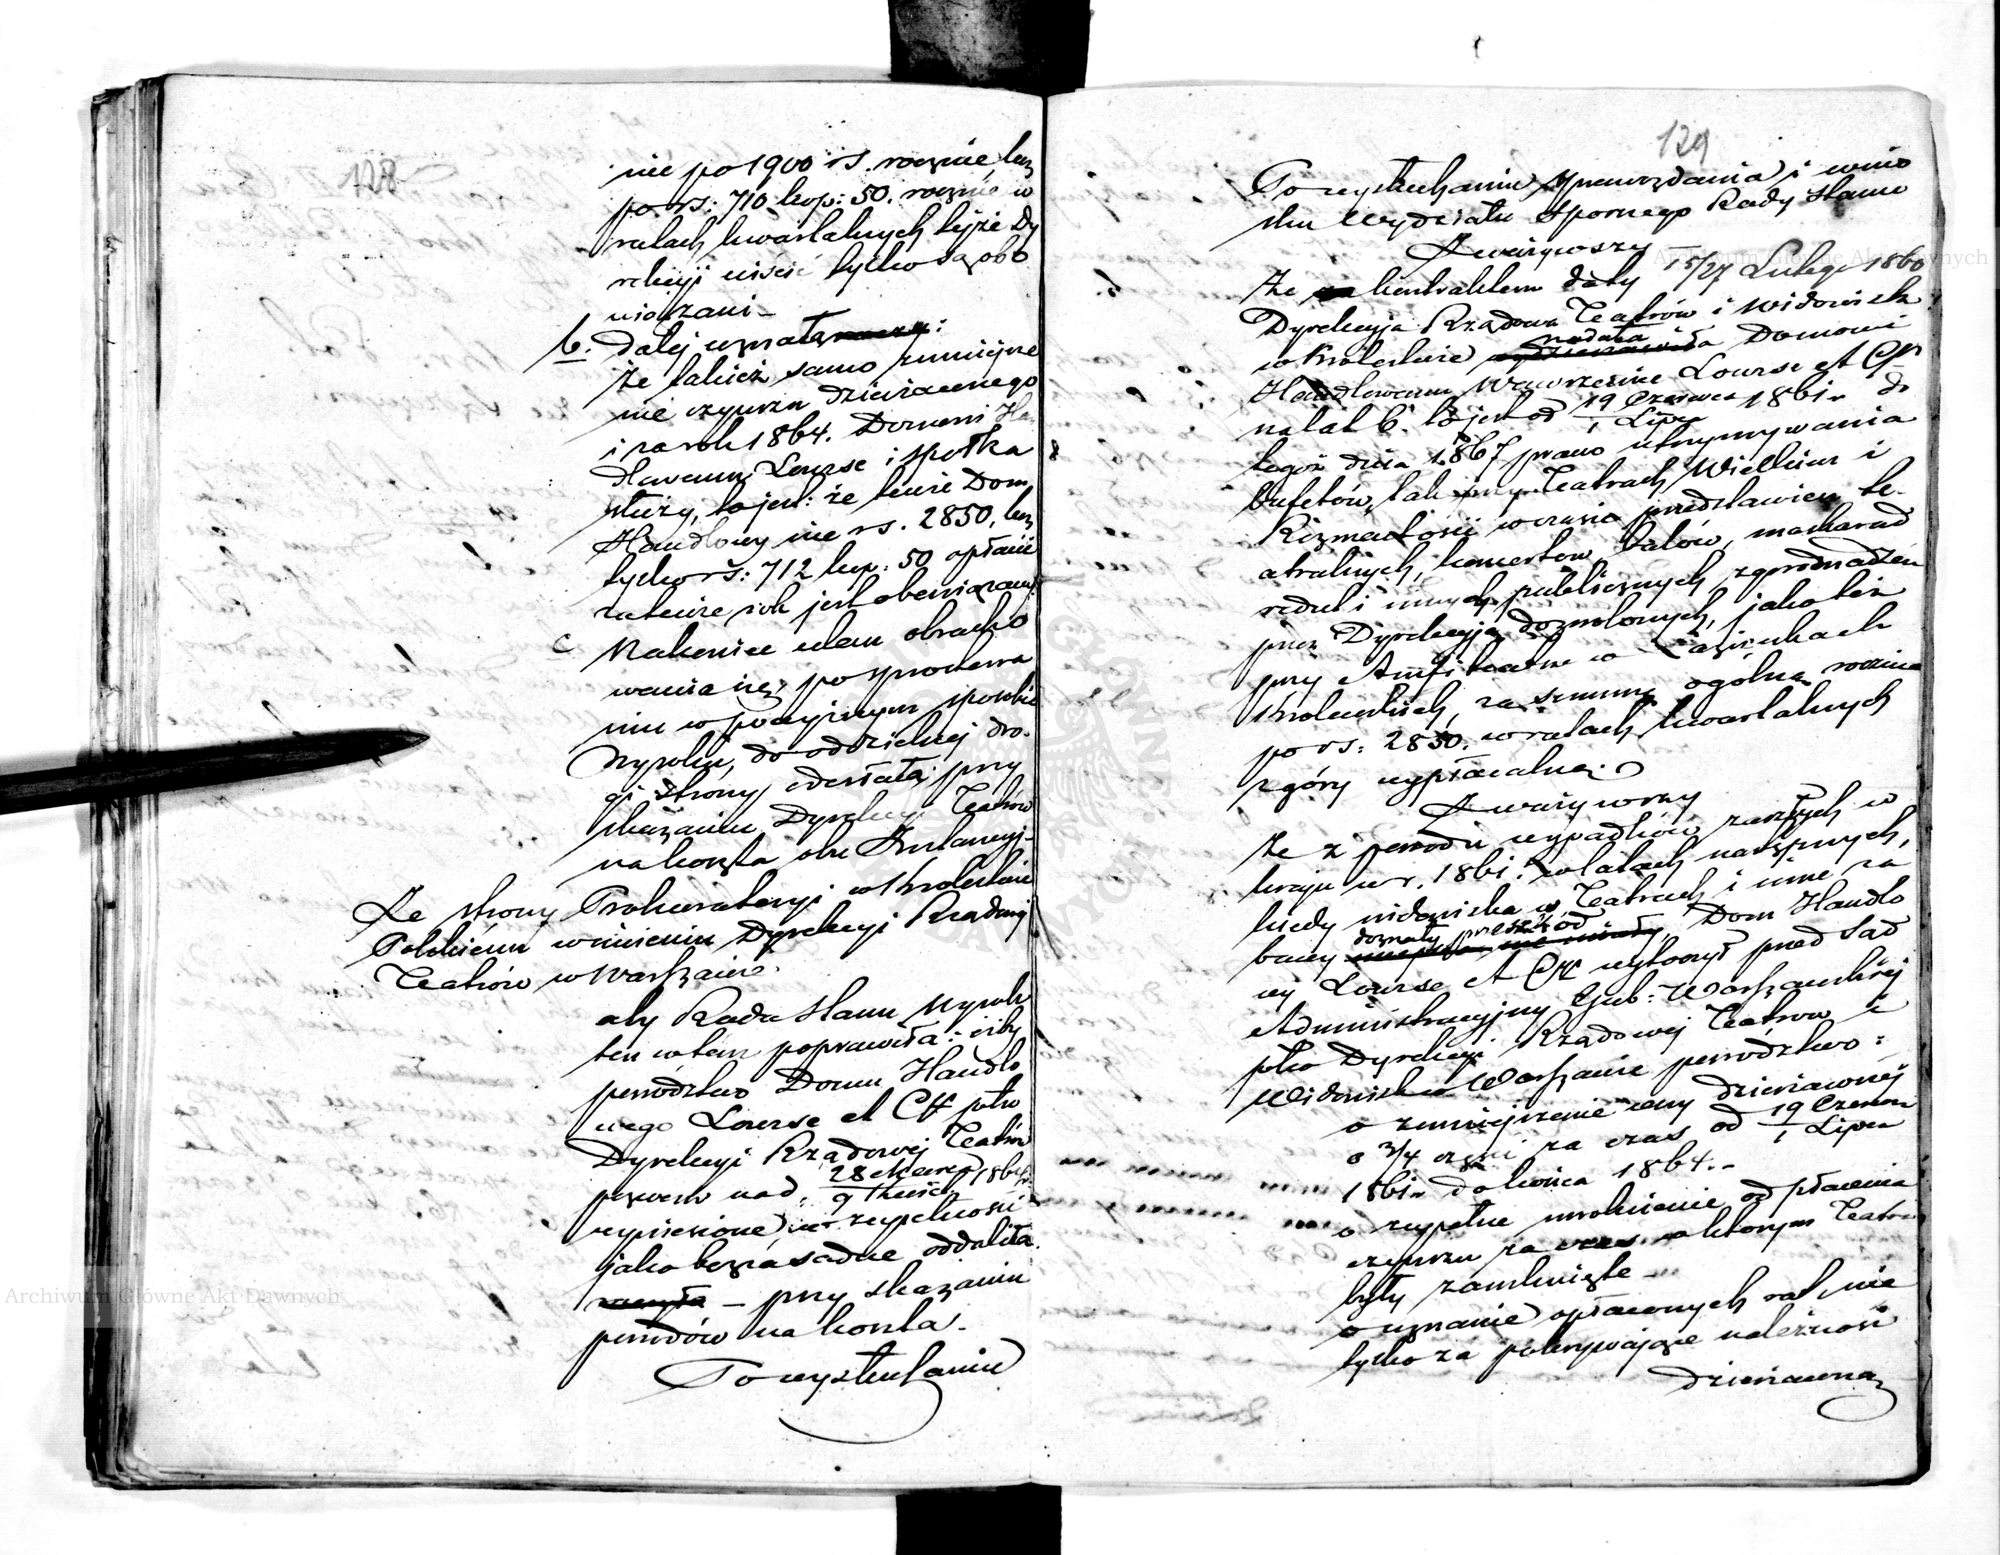 128
nie po 1900 rs. rocznie lecz
po rs: 710 kop: 50. rocznie w
ratach kwartalnych tejże Dy
rekcyi uiścić tylko są obo
wiązani –
b. dalej uznała:
że takież samo zmniejsze
nie czynszu dzierżawnego
i za rok 1864. Domowi Ha
dlowemu Lourse i spółka
służy, to jest: że tenże Dom
Handlowy nie rs. 2850, lecz
tylko rs: 712 kop: 50 opłacić
za tenże rok jest obowiązany.
c Nakoniec celem obracho
wania się, po sprostowa
niu w powyższym sposobie
Wyroku, do oddzielnej dro-
gi strony odesłała; przy
skazaniu Dyrekcyi Teatrów
na koszta obu Instancyj –
Ze strony Prokuratoryi w Królestwie
Polskiém w imieniu Dyrekcyi Rządowej
Teatrów w Warszawie.
aby Rada Stanu Wyrok
ten w tem poprawiła: iżby
powództwo Domu Handlo
wego Lourse et Cie prze
Dyrekcyi Rządowej Teatrów
pozwem z d. 28 Sierp/9 Wrześ 1864 r.
wyniesione, w zupełności
jako bezzasadne oddaliła.
– przy skazaniu
powodów na koszta.
Po wysłuchaniu
129
Po wysłuchaniu Sprawozdania i wnio
sku Wydziału Spornego Rady Stanu
Zważywszy –
Że kontraktem daty 15/27 Lutego 1860
Dyrekcyja Rządowa Teatrów i Widowisk
w Królestwie nadała Domowi
Handlowemu Wawrzeńca Lourse et Cie
na lat 6. to jest od 19 Czerwca/1 Lipca 1861 r. do
tegoż dnia 1867 prawo utrzymywania
bufetów, tak przy Teatrach Wielkim i
Rozmaitości w czasie przedstawień te-
atralnych, koncertów, balów, maskarad
redut i innych publicznych zgromadzeń
przez Dyrekcyją dozwolonych, jako też
przy Amfiteatrze w Łazienkach
Królewskich, za summę ogólną roczną
po rs: 2850. w ratach kwartalnych
z góry wypłacalną.
Zważywszy
Że z powodu wypadków zaszłych w
kraju w r. 1861. i w latach następnych,
kiedy widowiska w Teatrach i inne za
bawy doznały przeszkód, Dom Handlo
wy Lourse et Cie wytoczył przed Sąd
Administracyjny Gub: Warszawskiej
prko Dyrekcyi Rządowej Teatrów i
Widowisk w Warszawie powództwo:
o zmniejszenie ceny dzierżawnej
o 3/4 części za czas od 19 Czerwca/1 Lipca
1861 r. do końca 1864. –
o zupełne uwolnienie od płacenia
czynszu za czas w którym Teatra
były zamknięte –
o uznanie opłaconych rat, nie
tylko za pokrywające należność
dzierżawną
Archiwum Główne Akt Dawnych
Archiwum Główne Akt Dawnych